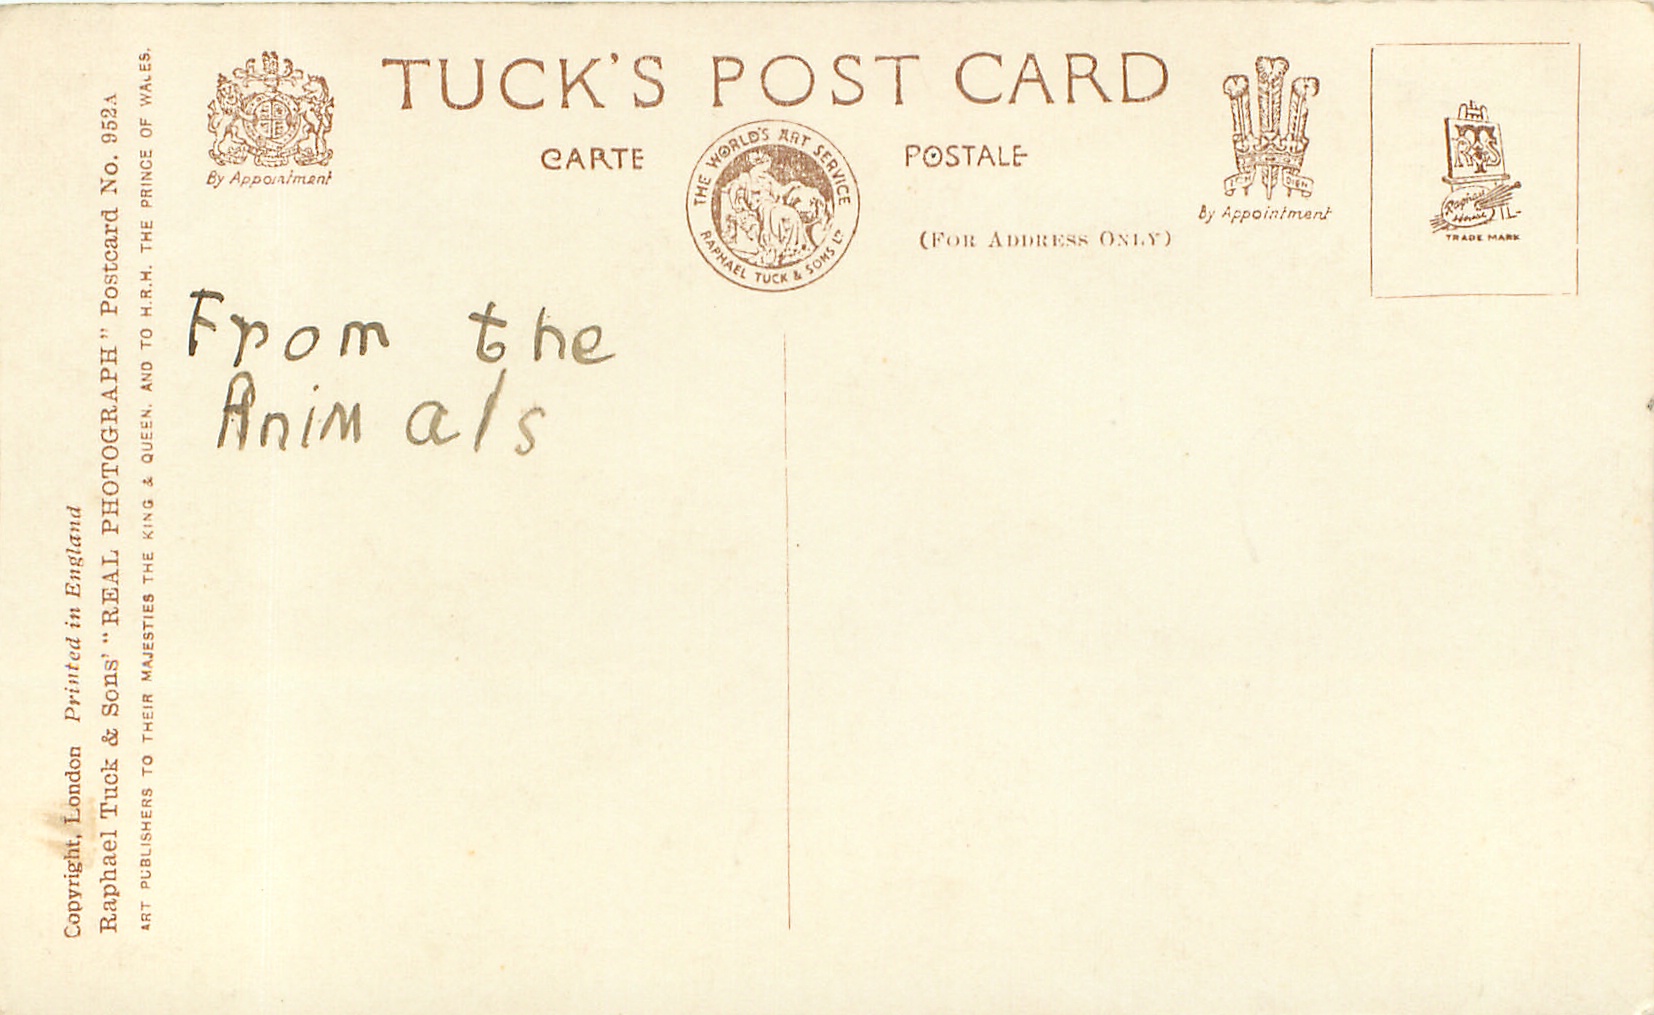 TUCK'S POST CARD
CARTE POSTALE
By Appointment
THE WORLD'S ART SERVICE
RAPHAEL TUCK & SONS LD
(FOR ADDRESS ONLY)
By Appointment
ICH DIEN
Raphael House
TRADE MARK
From the
Animals
Copyright, London Printed in England
Raphael Tuck & Sons' "REAL PHOTOGRAPH" Postcard No. 952A
ART PUBLISHERS TO THEIR MAJESTIES THE KING & QUEEN, AND TO H.R.H. THE PRINCE OF WALES.